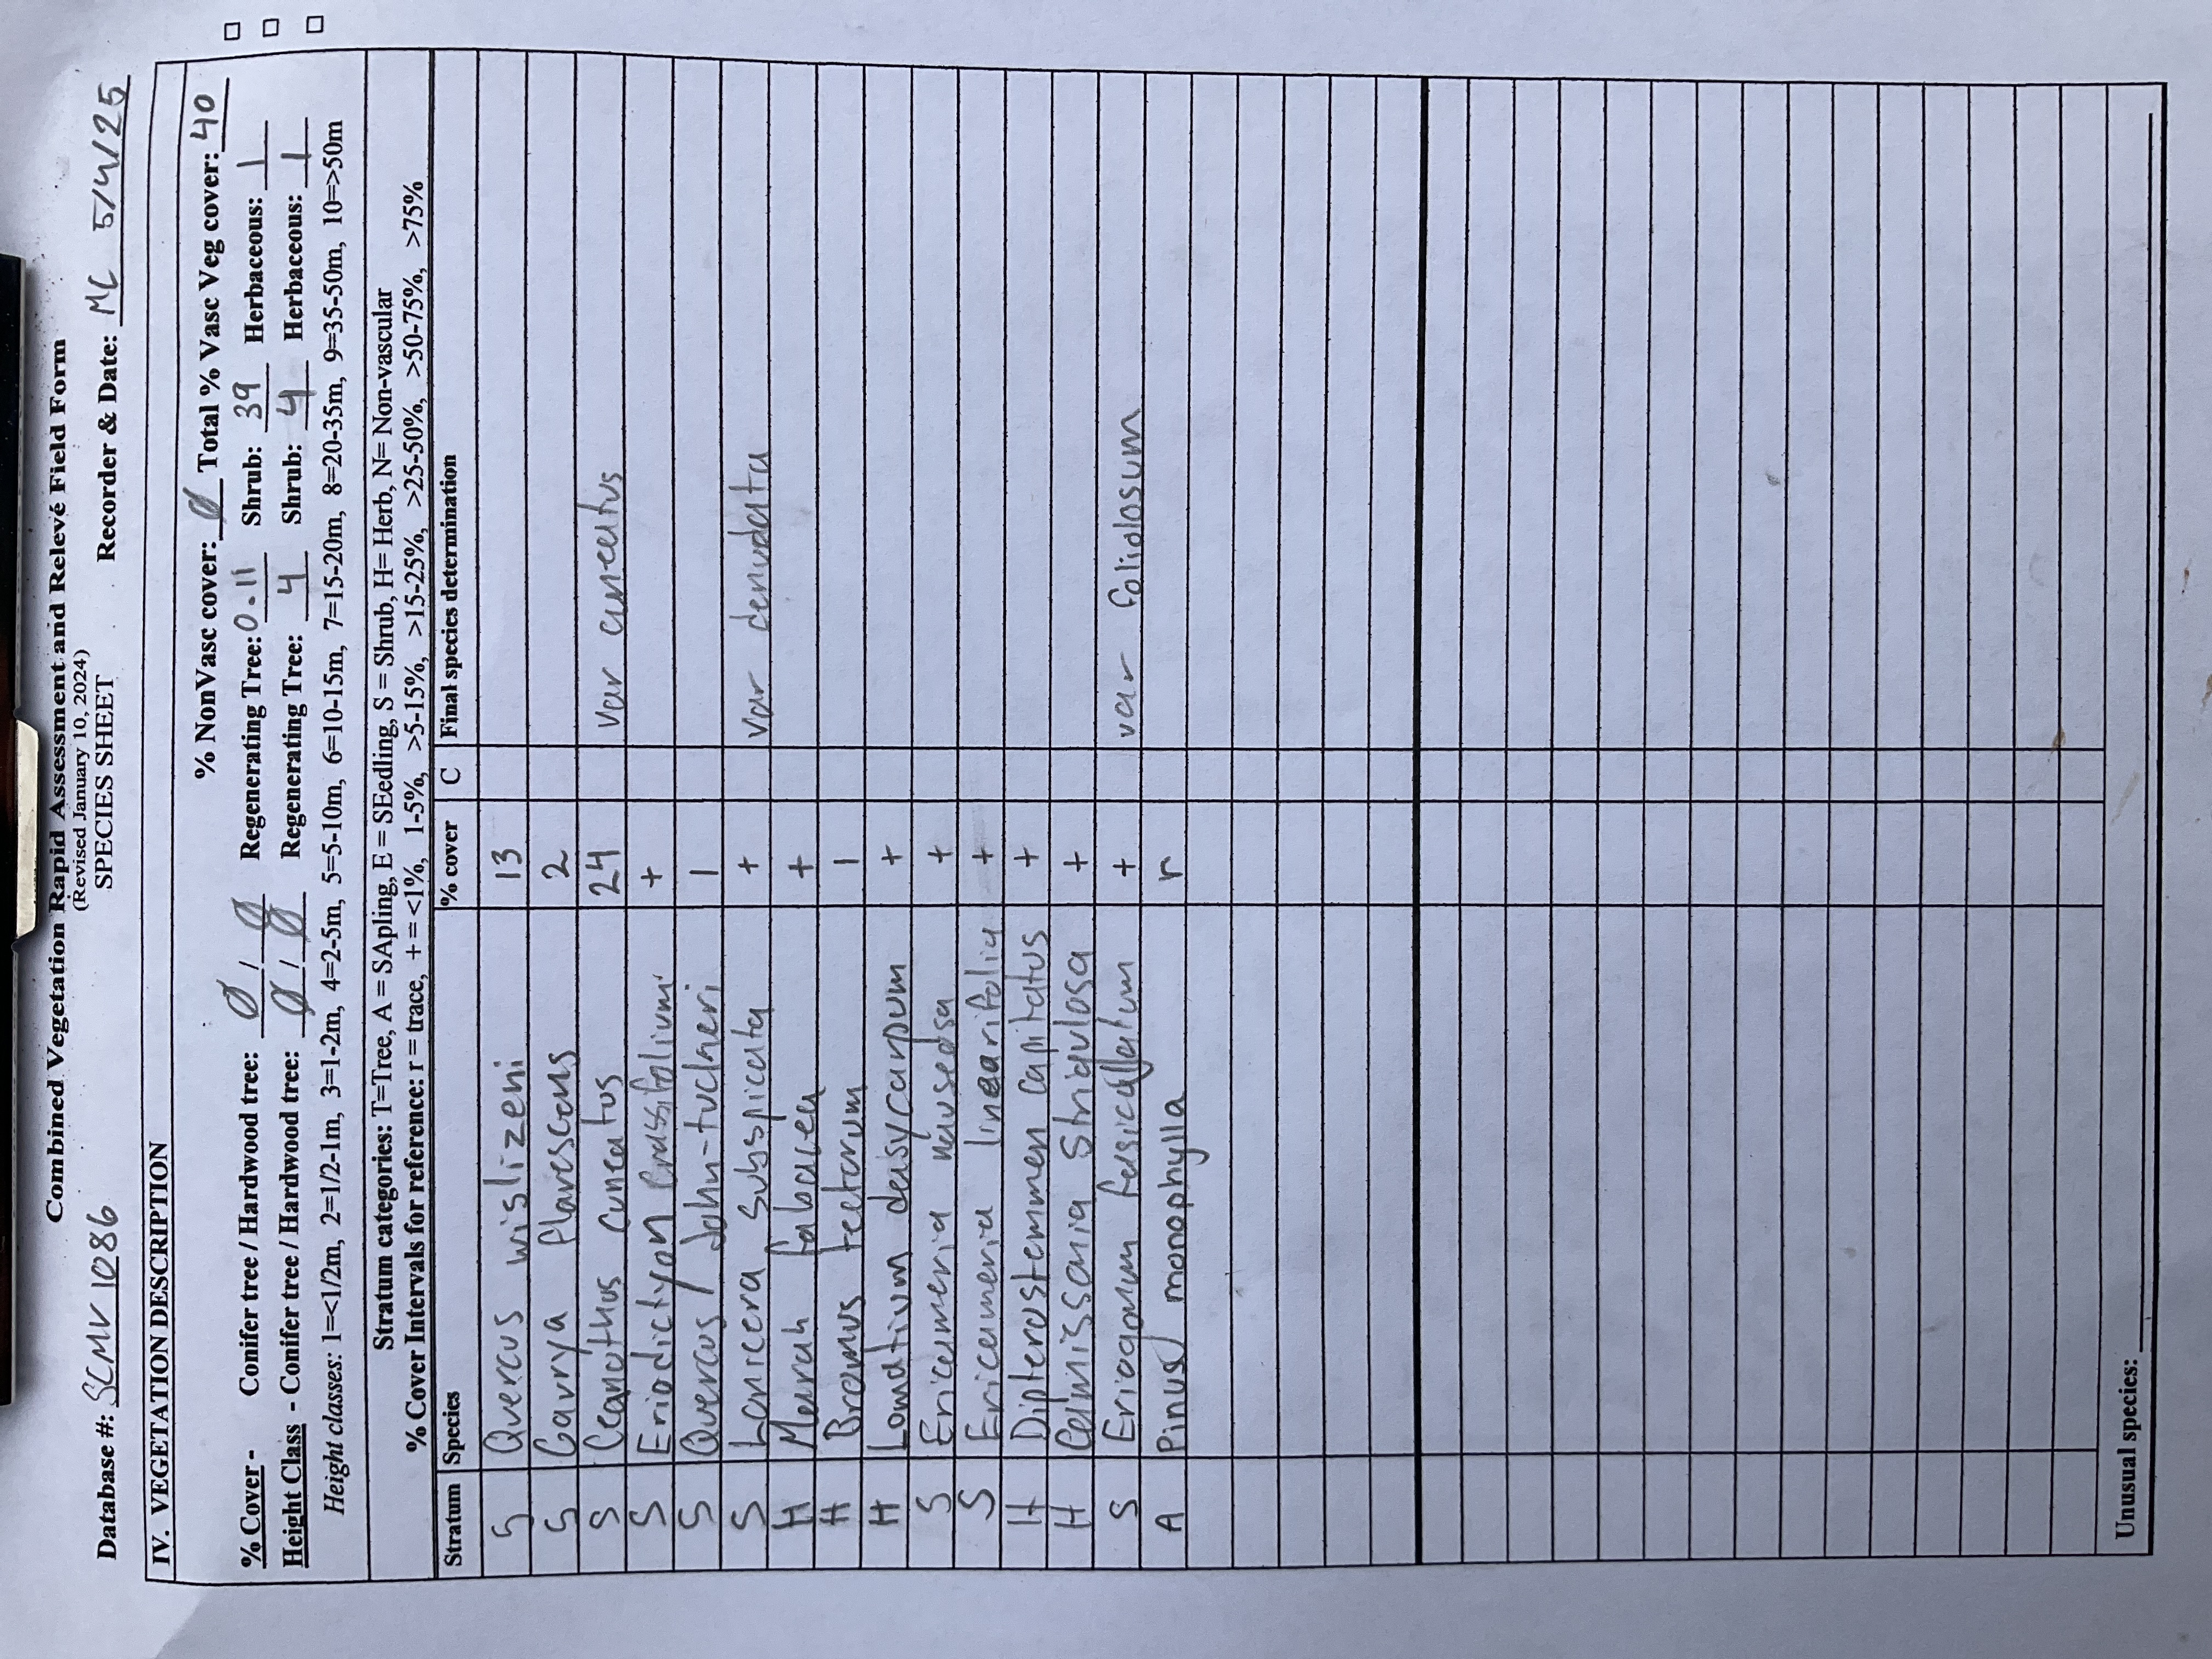 Combined Vegetation Rapid Assessment and Relevé Field Form
(Revised January 10, 2024)
SPECIES SHEET
Database #: SCMV 1086 Recorder & Date: MC 5/4/25
IV. VEGETATION DESCRIPTION
% NonVasc cover: Ø Total % Vasc Veg cover: 40
% Cover - Conifer tree / Hardwood tree: Ø / Ø Regenerating Tree: 0.11 Shrub: 39 Herbaceous: 1
Height Class - Conifer tree / Hardwood tree: Ø / Ø Regenerating Tree: 4 Shrub: 4 Herbaceous: 1
Height classes: 1=<1/2m, 2=1/2-1m, 3=1-2m, 4=2-5m, 5=5-10m, 6=10-15m, 7=15-20m, 8=20-35m, 9=35-50m, 10=>50m
Stratum categories: T=Tree, A = SApling, E = SEedling, S = Shrub, H= Herb, N= Non-vascular
% Cover Intervals for reference: r = trace, + = <1%, 1-5%, >5-15%, >15-25%, >25-50%, >50-75%, >75%
Stratum Species % cover C Final species determination
S Quercus wislizeni 13
S Garrya flavescens 2
S Ceanothus cuneatus 24 var cuneatus
S Eriodictyon crassifolium +
S Quercus john-tuckeri 1
S Lonicera subspicata + var denudata
H Marah fabacea +
H Bromus tectorum 1
H Lomatium dasycarpum +
S Ericameria nauseosa +
S Ericameria linearifolia +
H Dipterostemmen capitatus +
H Camissonia strigulosa +
S Eriogonum fasciculatum + var foliolosum
A Pinus monophylla r
Unusual species: